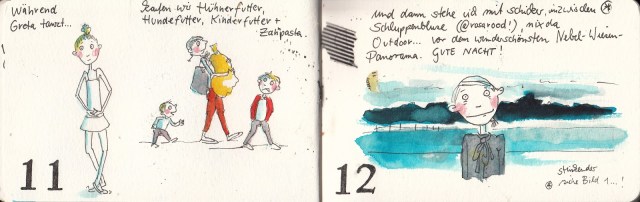 Während
Greta tanzt...
kaufen wir Hühnerfutter,
Hundefutter, Kinderfutter +
Zahnpasta.
11
und dann stehe ich mit schicker, inzwischen
Schluppenbluse (@rosarood!), nix da
Outdoor... vor dem wunderschönsten Nebel-Wiesen-
Panorama. GUTE NACHT!
12
siehe Bild 1...!